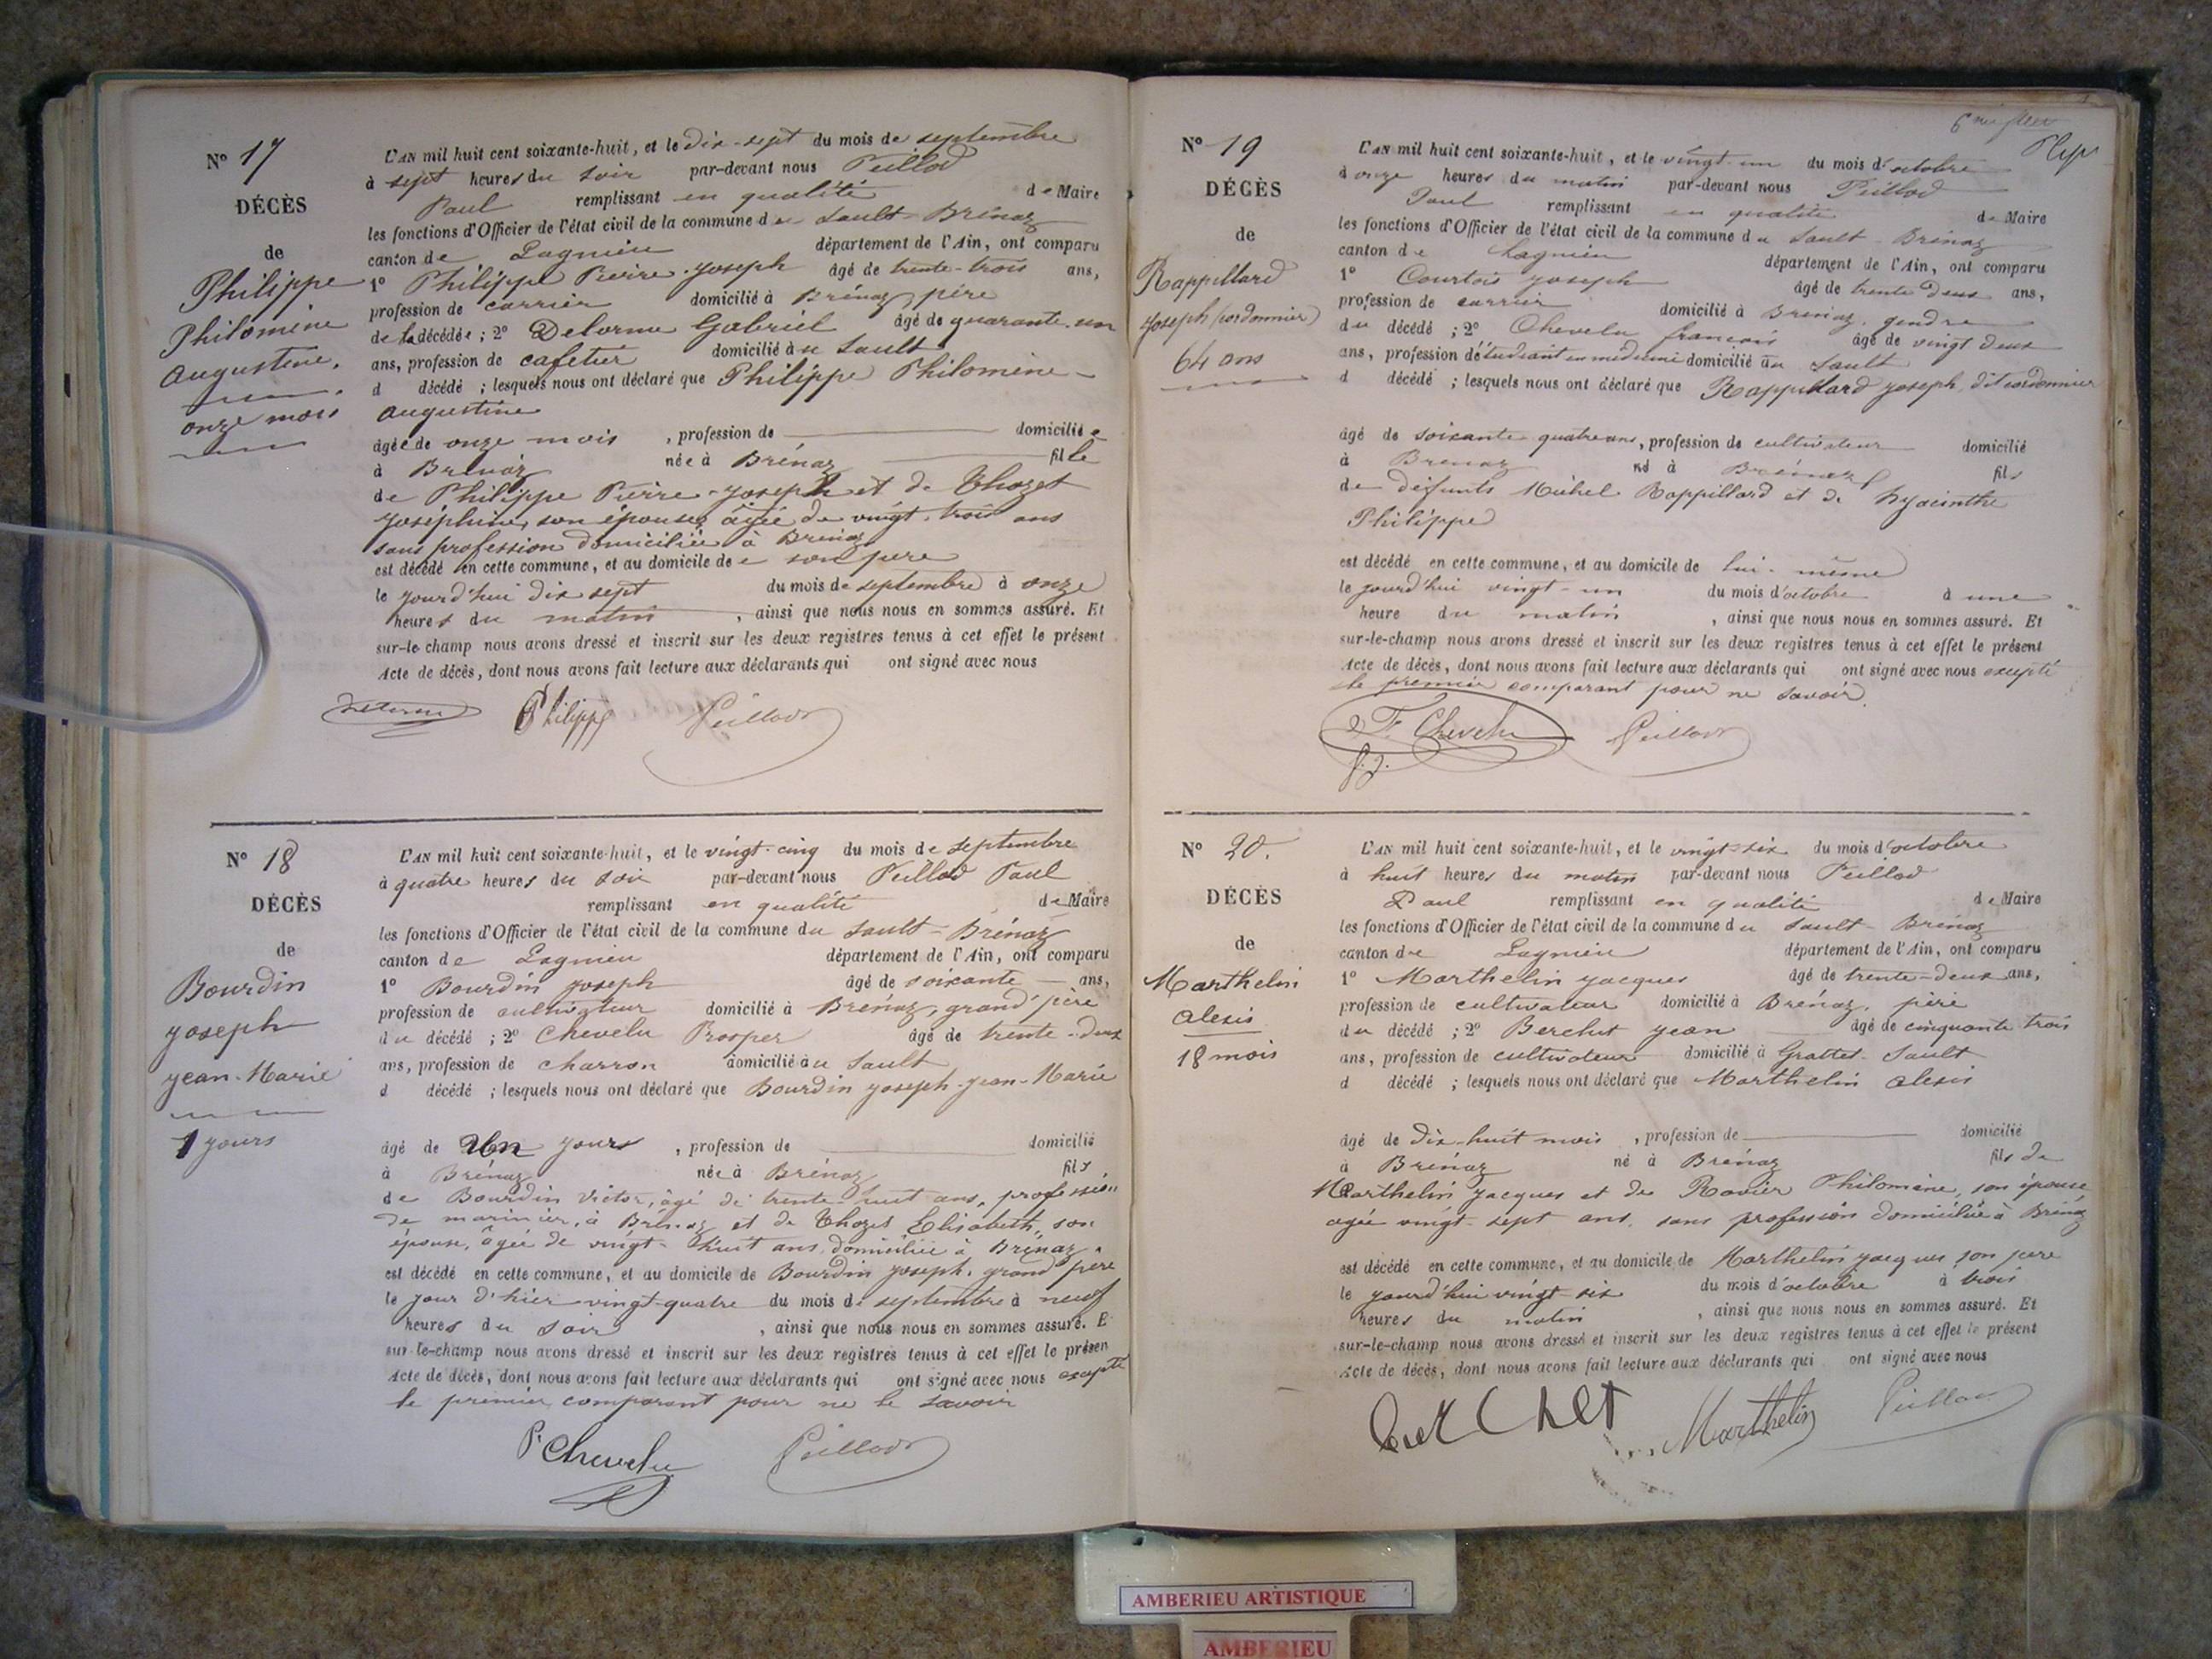 Nº 17
DÉCÈS
de
Philippe
Philomène
Augustine.
onze mois
L'AN mil huit cent soixante-huit, et le dix-sept du mois de septembre
à sept heures du soir par-devant nous Peillod
Paul remplissant en qualité de Maire
les fonctions d'Officier de l'état civil de la commune du Sault-Brénaz
canton de Lagnieu département de l'Ain, ont comparu
1º Philippe Pierre-Joseph âgé de trente-trois ans,
profession de carrier domicilié à Brénaz, père
de la décédée ; 2º Delorme Gabriel âgé de quarante-un
ans, profession de cafetier domicilié au Sault
d décédé ; lesquels nous ont déclaré que Philippe Philomène-
Augustine
âgée de onze mois , profession de domiciliée
à Brénaz née à Brénaz fille
de Philippe Pierre-Joseph et de Thozet
Joséphine, son épouse, âgée de vingt-trois ans
sans profession domiciliée à Brénaz
est décédé en cette commune, et au domicile de son père
le jourd'hui dix sept du mois de septembre à onze
heures du matin , ainsi que nous nous en sommes assuré. Et
sur-le-champ nous avons dressé et inscrit sur les deux registres tenus à cet effet le présent
Acte de décès, dont nous avons fait lecture aux déclarants qui ont signé avec nous
Philippe Peillod
Nº 18
DÉCÈS
de
Bourdin
Joseph
Jean-Marie
1 jours
L'AN mil huit cent soixante-huit, et le vingt-cinq du mois de septembre
à quatre heures du soir par-devant nous Peillod Paul
remplissant en qualité de Maire
les fonctions d'Officier de l'état civil de la commune du Sault-Brénaz
canton de Lagnieu département de l'Ain, ont comparu
1º Bourdin Joseph âgé de soixante ans,
profession de cultivateur domicilié à Brénaz, grand'père
du décédé ; 2º Chevelu Prosper âgé de trente-deux
ans, profession de charron domicilié au Sault
d décédé ; lesquels nous ont déclaré que Bourdin Joseph-Jean-Marie
âgé de Un jours , profession de domicilié
à Brénaz née à Brénaz fils
de Bourdin Victor, âgé de trente-huit ans, profession
de marinier, à Brénaz et de Thozet Elisabeth, son
épouse, âgée de vingt-huit ans, domiciliée à Brénaz.
est décédé en cette commune, et au domicile de Bourdin Joseph, grand'père
le jour d'hier vingt-quatre du mois de septembre à neuf
heures du soir , ainsi que nous nous en sommes assuré. E
sur-le-champ nous avons dressé et inscrit sur les deux registres tenus à cet effet le présen
Acte de décès, dont nous avons fait lecture aux déclarants qui ont signé avec nous excepté
le premier comparant pour ne le savoir
P. Chevelu Peillod
Nº 19
DÉCÈS
de
Rappillard
Joseph (cordonnier)
64 ans
L'AN mil huit cent soixante-huit, et le vingt-un du mois d'octobre
à onze heures du matin par-devant nous Peillod
Paul remplissant en qualité de Maire
les fonctions d'Officier de l'état civil de la commune du Sault-Brénaz
canton de Lagnieu département de l'Ain, ont comparu
1º Courtois Joseph âgé de trente deux ans,
profession de carrier domicilié à Brénaz, gendre
du décédé ; 2º Chevelu françois âgé de vingt deux
ans, profession d'étudiant en médecine domicilié au Sault
d décédé ; lesquels nous ont déclaré que Rappillard Joseph, dit cordonnier
âgé de soixante quatre ans, profession de cultivateur domicilié
à Brénaz né à Brénaz fils
de défunts Michel Rappillard et de Hyacinthe
Philippe
est décédé en cette commune, et au domicile de lui-même
le jourd'hui vingt-un du mois d'octobre à une
heure du matin , ainsi que nous nous en sommes assuré. Et
sur-le-champ nous avons dressé et inscrit sur les deux registres tenus à cet effet le présent
Acte de décès, dont nous avons fait lecture aux déclarants qui ont signé avec nous excepté
le premier comparant pour ne savoir.
F. Chevelu Peillod
Nº 20.
DÉCÈS
de
Marthelin
Alexis
18 mois
L'AN mil huit cent soixante-huit, et le vingt-six du mois d'octobre
à huit heures du matin par-devant nous Peillod
Paul remplissant en qualité de Maire
les fonctions d'Officier de l'état civil de la commune du Sault-Brénaz
canton de Lagnieu département de l'Ain, ont comparu
1º Marthelin Jacques âgé de trente-deux ans,
profession de cultivateur domicilié à Brénaz, père
du décédé ; 2º Berchet Jean âgé de cinquante trois
ans, profession de cultivateur domicilié à Grattet-Sault
d décédé ; lesquels nous ont déclaré que Marthelin Alexis
âgé de dix-huit mois , profession de domicilié
à Brénaz né à Brénaz fils de
Marthelin Jacques et de Ravier Philomène, son épouse
agée vingt-sept ans, sans profession domiciliée à Brénaz
est décédé en cette commune, et au domicile de Marthelin Jacques son père
le jourd'hui vingt-six du mois d'octobre à trois
heures du matin , ainsi que nous nous en sommes assuré. Et
sur-le-champ nous avons dressé et inscrit sur les deux registres tenus à cet effet le présent
Acte de décès, dont nous avons fait lecture aux déclarants qui ont signé avec nous
Berchet Marthelin Peillod
AMBERIEU ARTISTIQUE
AMBERIEU